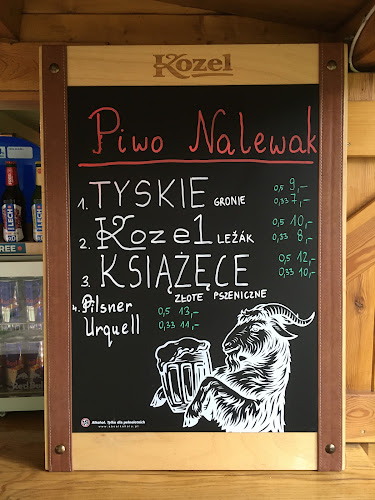 Kozel
Piwo Nalewak
1. TYSKIE GRONIE 0,5 9,-
0,33 7,-
2. Kozel LEŽÁK 0,5 10,-
0,33 8,-
3. KSIĄŻĘCE 0,5 12,-
0,33 10,-
ZŁOTE PSZENICZNE
4. Pilsner Urquell 0,5 13,-
0,33 11,-
Alkohol. Tylko dla pełnoletnich.
LECH
FREE
Red Bull